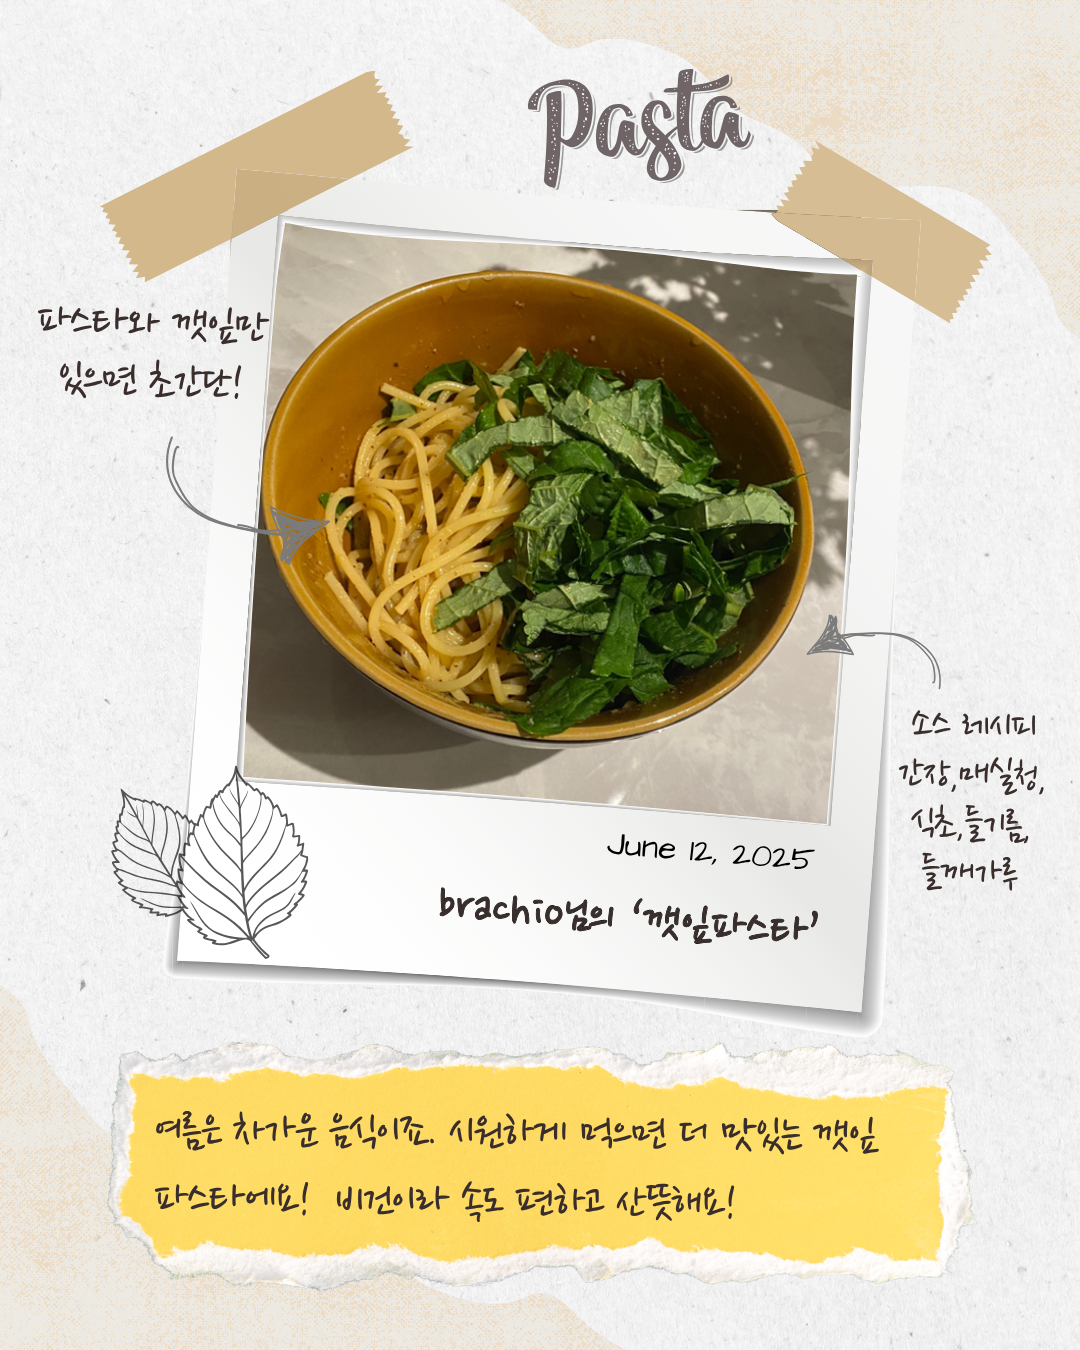 Pasta
파스타와 깻잎만
있으면 초간단!
소스 레시피
간장, 매실청,
식초, 들기름,
들깨가루
June 12, 2025
brachio님의 ‘깻잎파스타’
여름은 차가운 음식이죠. 시원하게 먹으면 더 맛있는 깻잎
파스타에요! 비건이라 속도 편하고 산뜻해요!